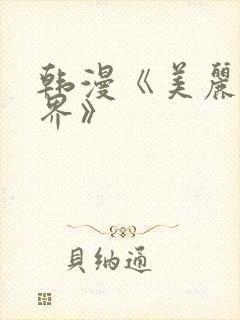 韩漫《美麗
界》
貝納通